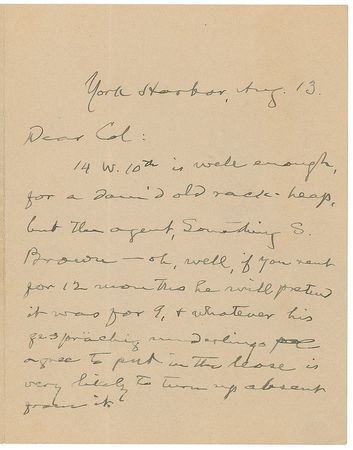 York Harbor, Aug. 13.
Dear Col:
14 W. 10th is well enough,
for a dam'd old rack-heap,
but the agent, Something S.
Brown — oh, well, if you rent
for 12 months he will pretend
it was for 9, & whatever his
underlings
agree to put in the lease is
very likely to turn up absent
from it.